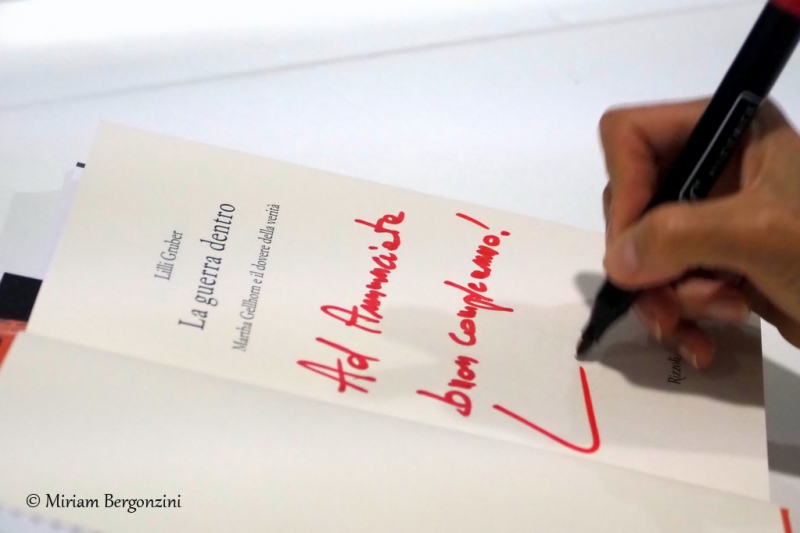 Lilli Gruber
La guerra dentro
Martha Gellhorn e il dovere della verità
Ad Annunciata
buon compleanno!
© Miriam Bergonzini